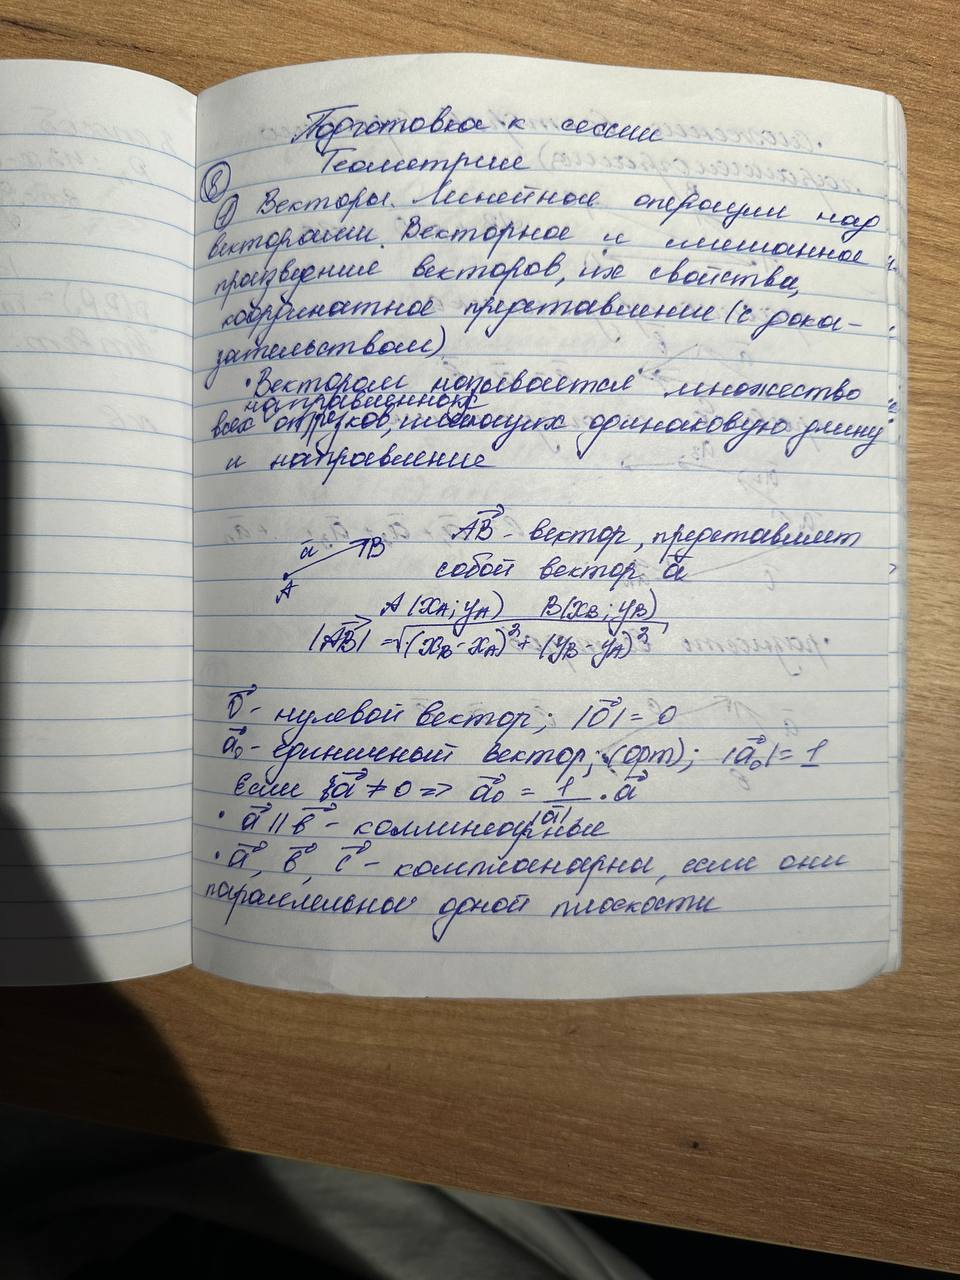 Подготовка к сессии
Геометрии
8
① Векторы. Линейное операции над
векторами. Векторное и смешанное
произведение векторов, их свойства,
координатное представление (с дока-
зательством)
• Вектором называется множество
направленных
всех отрезков, имеющих одинаковую длину
и направление
a⃗ B A⃗B⃗ - вектор, представляет
A собой вектор a⃗
A(x_A; y_A) B(x_B; y_B)
|A⃗B⃗| = √(x_B - x_A)² + (y_B - y_A)²
0⃗ - нулевой вектор; |0⃗| = 0
a⃗₀ - единичный вектор; (орт); |a⃗₀| = 1
Если a⃗ ≠ 0 => a⃗₀ = 1/|a⃗| · a⃗
• a⃗ || b⃗ - коллинеарные
• a⃗, b⃗, c⃗ - компланарна, если они
параллельной одной плоскости